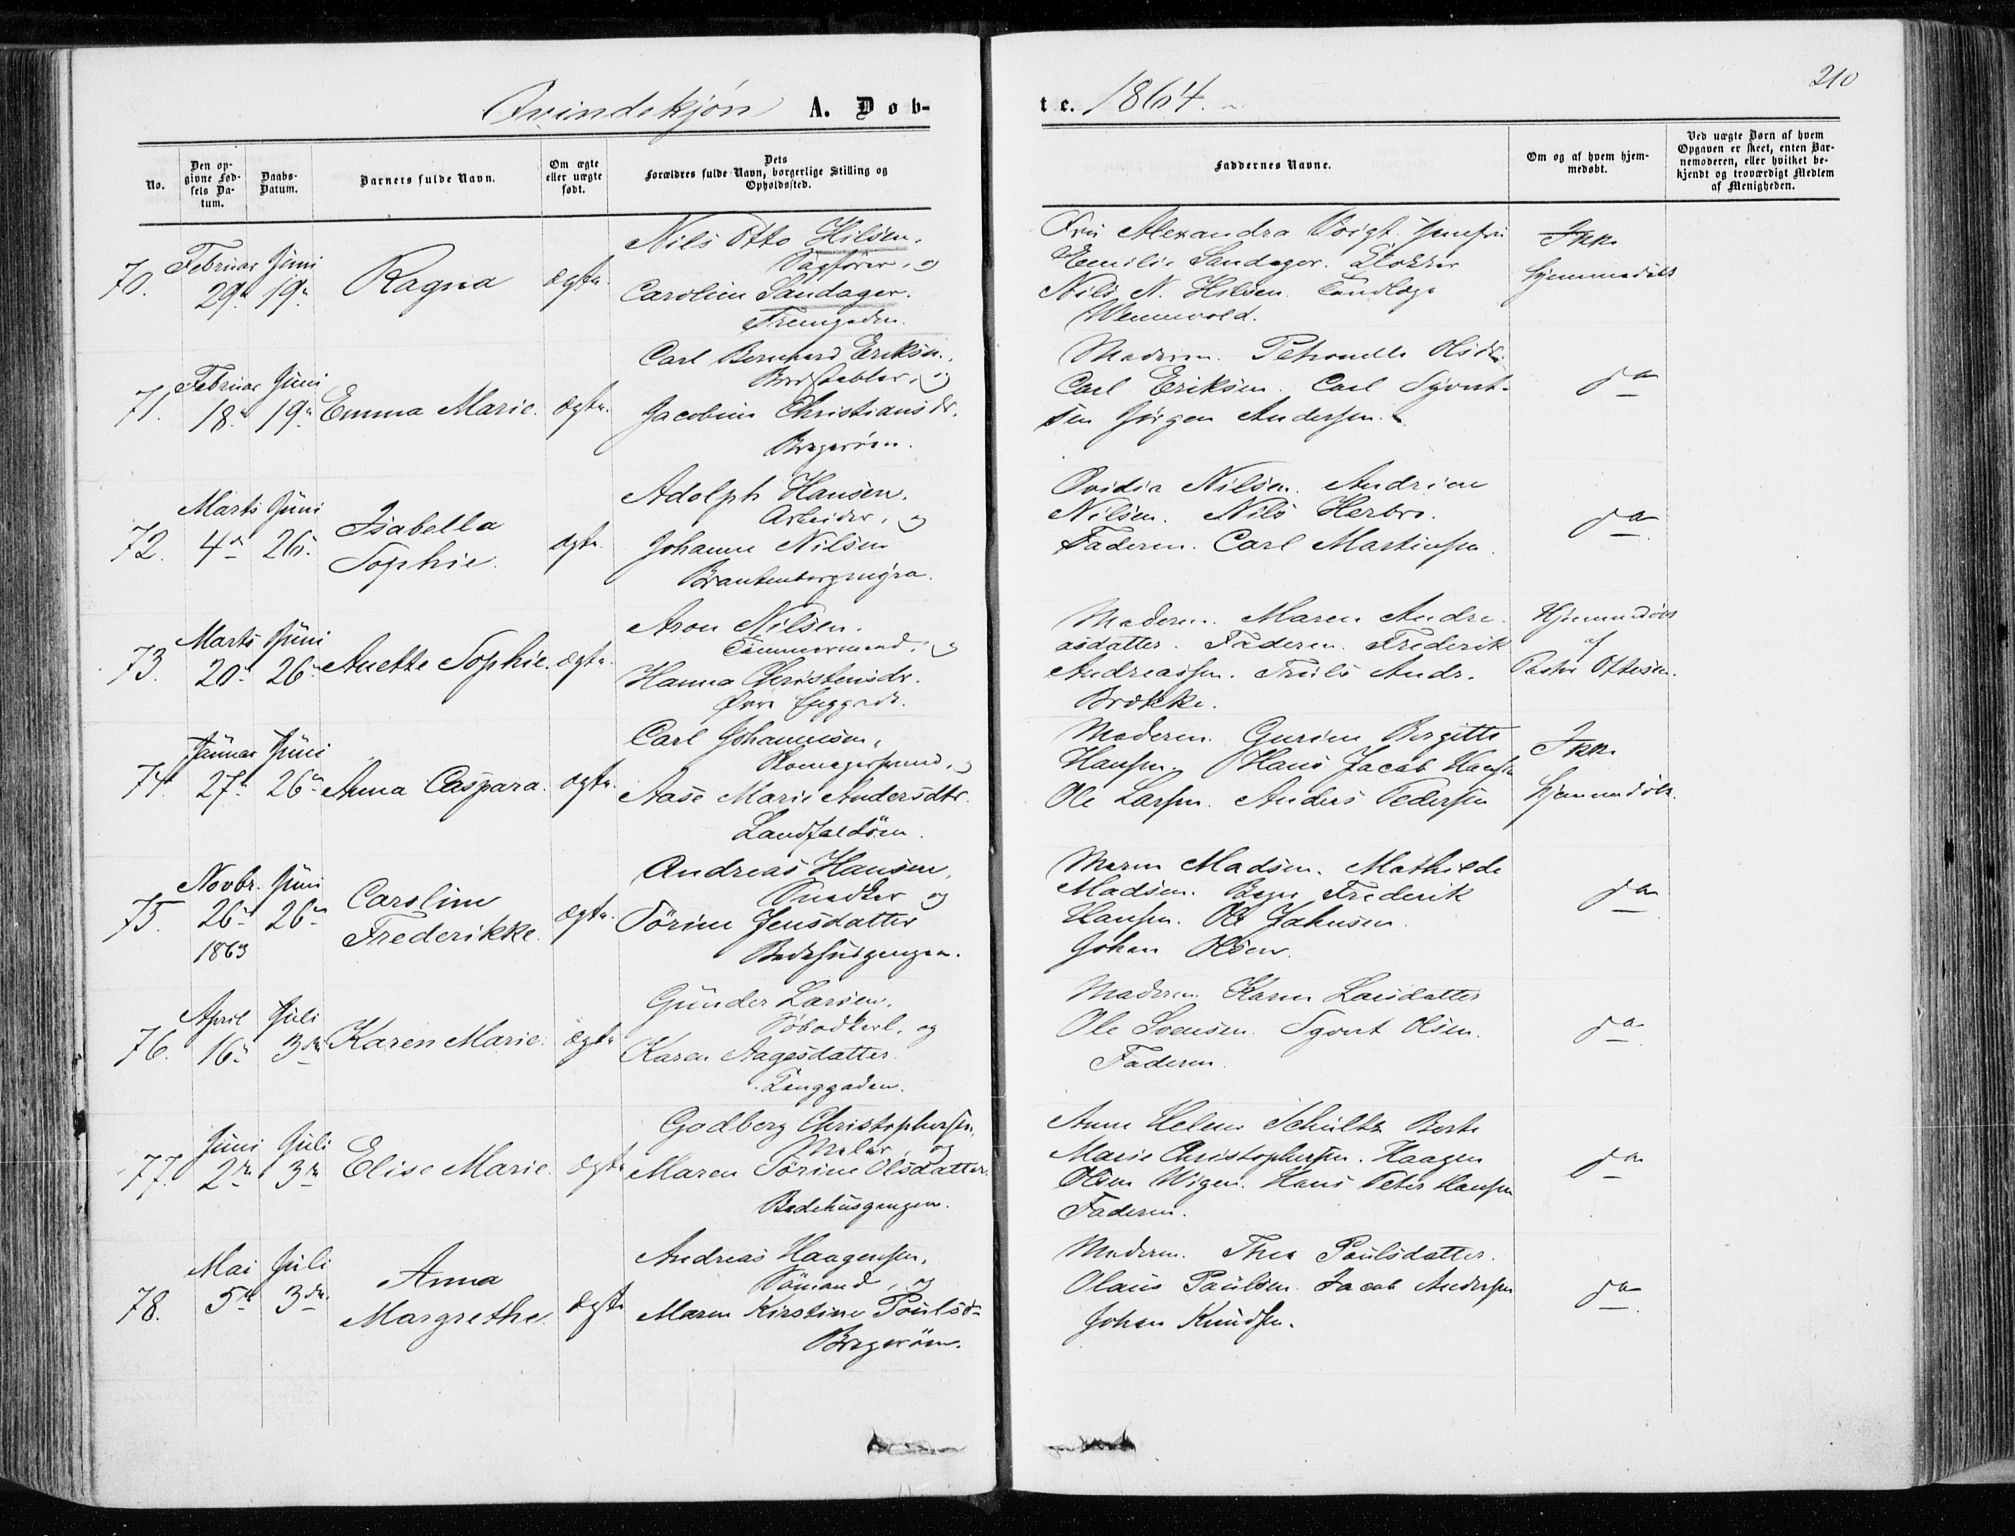 210
Qvindekjøn A. Døb-
te. 1864.
No.
Den op-
givne Fød-
sels Da-
tum.
Daabs-
Datum.
Barnets fulde Navn.
Om ægte
eller uægte
født.
Dets
Forældres fulde Navn, borgerlige Stilling og
Opholdssted.
Faddernes Navne.
Om og af hvem hjem-
medøbt.
Ved uægte Børn af hvem
Opgaven er skeet, enten Bar-
nemoderen, eller hvilket be-
kjendt og troværdigt Medlem
af Menigheden.
70.
Februar
29de
Juni
19de
Ragna
ægte.
Nils Otto Hilsen,
Sagfører, og
Caroline Sandager.
Tverrgaden.
Fru Alexandra Voigt. Jomfru
Emilie Sandager.
Nils N. Hilsen. Tandlæge
Wennevold.
Ikke
hjemmedøbt
71.
Februar
18de
Juni
19de
Emma Marie.
ægte.
Carl Bernhard Eriksen,
Bordstabler, og
Jacobine Christiansdr.
Bragerøen.
Moderen. Petronelle Olsdr.
Carl Eriksen. Carl Syvert-
sen Jørgen Andersen.
do
72.
Marts
4de
Juni
26de
Isabella
Sophie.
ægte.
Adolph Hansen.
Arbeider, og
Johanne Nilsen
Ovidia Nilsen. Andrine
Nilsen. Nils Herbro.
Faderen. Carl Martinsen.
do
73.
Marts
20de
Juni
26de
Anette Sophie.
ægte.
Aron Nilsen.
Tømmermand, og
Hanna Christensdr.
Øvre Enggade.
Moderen. Maren Andre-
asdatter. Faderen. Frederik
Andreassen. Truls Andr.
Brække.
Hjemmedøbt
af
Pastor Ottesen.
74
Januar
27de
Juni
26de
Anna Caspara.
ægte.
Carl Johannesen,
Skomagersvend, og
Aase Marie Andersdtr.
Landfaldøen.
Moderen. Gurine Birgitte
Hansen. Hans Jacob Hansen
Ole Larsen. Anders Pedersen
Ikke
hjemmedøbt.
75.
Novbr.
26de
1863
Juni
26de
Caroline
Frederikke.
ægte.
Andreas Hansen,
Snedker og
Sørine Jensdatter
Bedehusgangen.
Maren Madsen. Mathilde
Madsen. Frederik
Hansen. Ole Johnsen.
Johan Olsen.
do
76.
April
16de
Juli
3die
Karen Marie.
ægte
Gunder Larsen,
og
Karen Aagesdatter.
Langgaden.
Moderen Karen Larsdatter
Ole Svensen. Syvert Olsen.
Faderen.
do
77.
Juni
2den
Juli
3die
Elise Marie.
ægte
Godberg Christophersen,
Maler, og
Maren Sørine Olsdatter.
Bedehusgangen.
Anne Helene Schultz Berte
Marie Christophersen. Haagen
Olsen Wigen. Hans Peter Hansen
Faderen.
do
78.
Mai
5te
Juli
3die
Anna
Margrethe.
ægte
Andreas Haagensen,
Sømand, og
Maren Kirstine Poulsdr
Bragerøen.
Moderen. Thea Poulsdatter.
Olaus Paulsen. Jacob Andersen
Johan Knudsen.
do